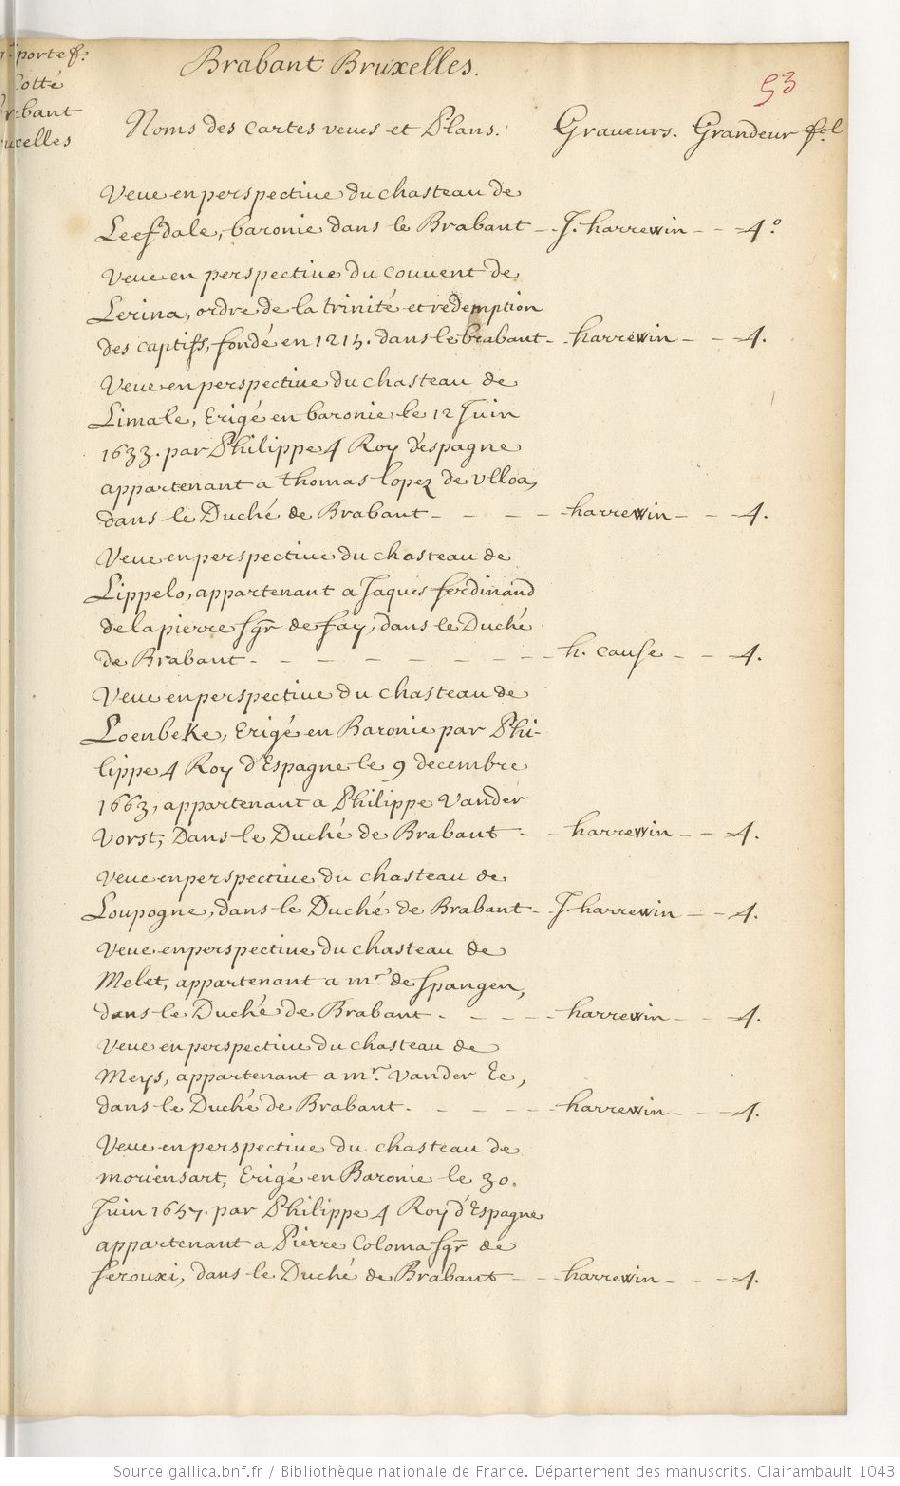 porte f.
Cotté
Brabant
Bruxelles
Brabant Bruxelles.
53
Noms des cartes veues et Plans. Graveurs. Grandeur
Veue en perspective du chasteau de
Leefdale, baronie dans le Brabant - J. harrewin - - 4.°
Veue en perspective du couvent de
Lerina, ordre de la trinité et redemption
des captifs, fondé en 1215. dans le brabant - harrewin - - 4.
Veue en perspective du chasteau de
Limale, Erigé en baronie le 12 Juin
1633. par Philippe 4 Roy d'espagne
appartenant a thomas lopez de Ulloa,
dans le Duché de Brabant - - - - harrewin - - 4.
Veue en perspective du chasteau de
Lippelo, appartenant a Jaques ferdinand
de la pierre sgr de fay, dans le Duché
de Brabant - - - - - - - - h. cause - - 4.
Veue en perspective du chasteau de
Loenbeke, Erigé en Baronie par Phi-
lippe 4 Roy d'Espagne le 9 decembre
1663, appartenant a Philippe Vander
Vorst, Dans le Duché de Brabant - - harrewin - - 4.
Veue en perspective du chasteau de
Loupogne, dans le Duché de Brabant - J harrewin - - 4.
Veue en perspective du chasteau de
Melet, appartenant a mr. de Spangen,
dans le Duché de Brabant - - - - harrewin - - 4.
Veue en perspective du chasteau de
Meys, appartenant a mr. Vander Ee,
dans le Duché de Brabant. - - - - harrewin - - 4.
Veue en perspective du chasteau de
moriensart, Erigé en Baronie le 30.
Juin 1657. par Philippe 4 Roy d'Espagne
appartenant a Pierre Coloma sgr de
Serouxi, dans le Duché de Brabant - - harrewin - - 4.
Source gallica.bnf.fr / Bibliothèque nationale de France. Département des manuscrits. Clairambault 1043